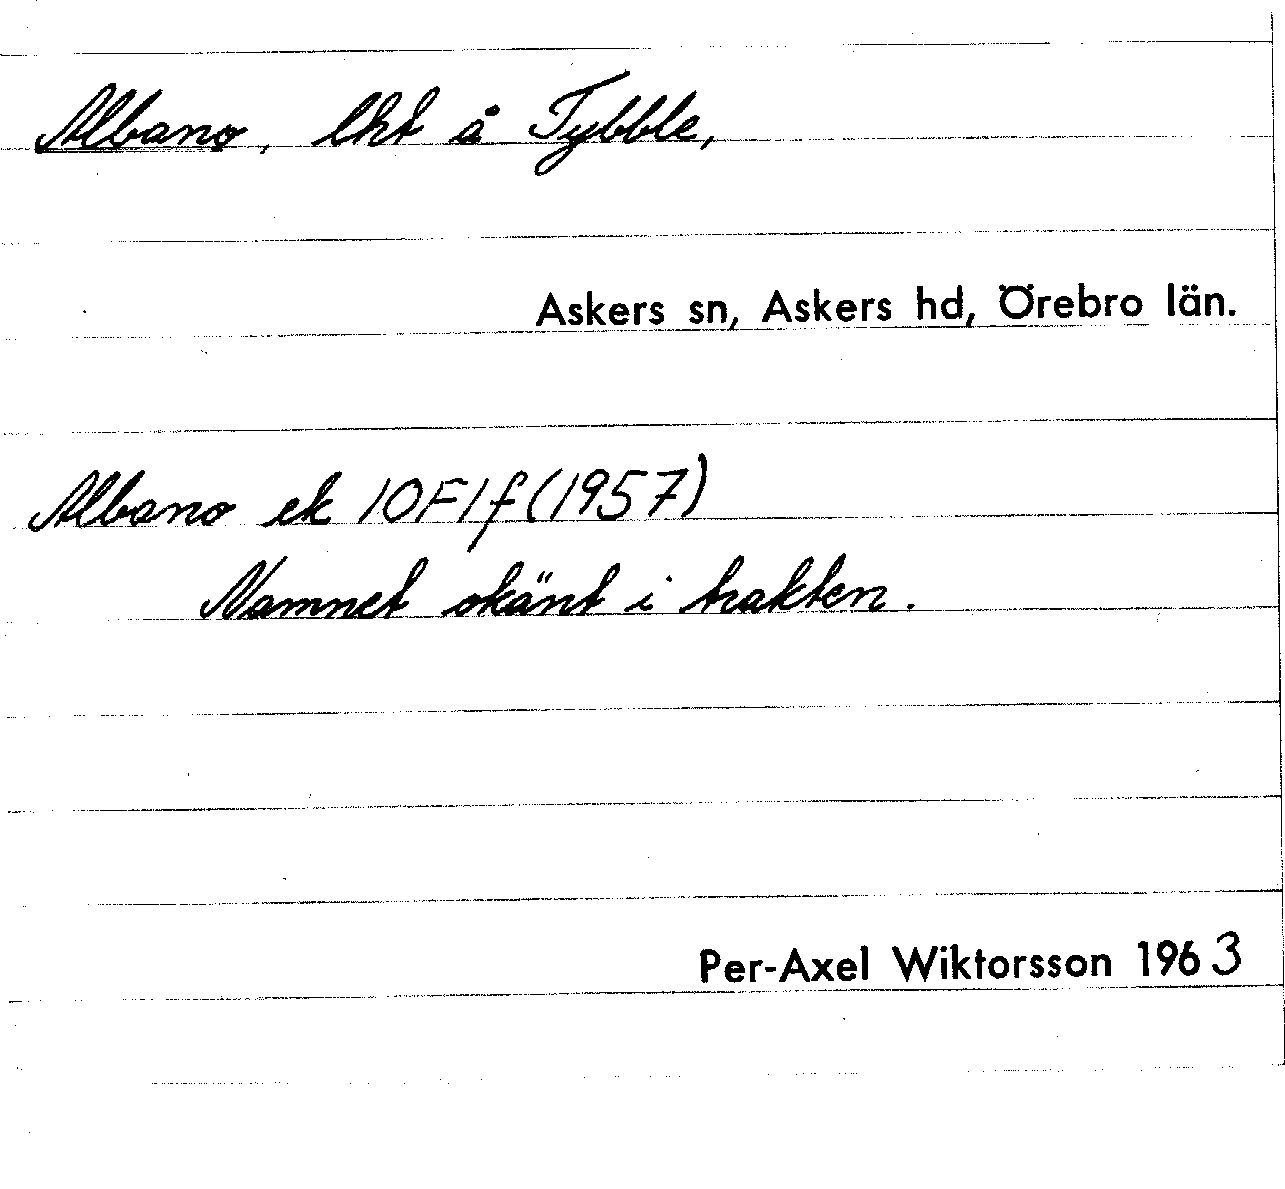 Albano, lht å Tybble,
Askers sn, Askers hd, Örebro län.
Albano ek 10F1f (1957)
Namnet okänt i trakten.
Per-Axel Wiktorsson 1963